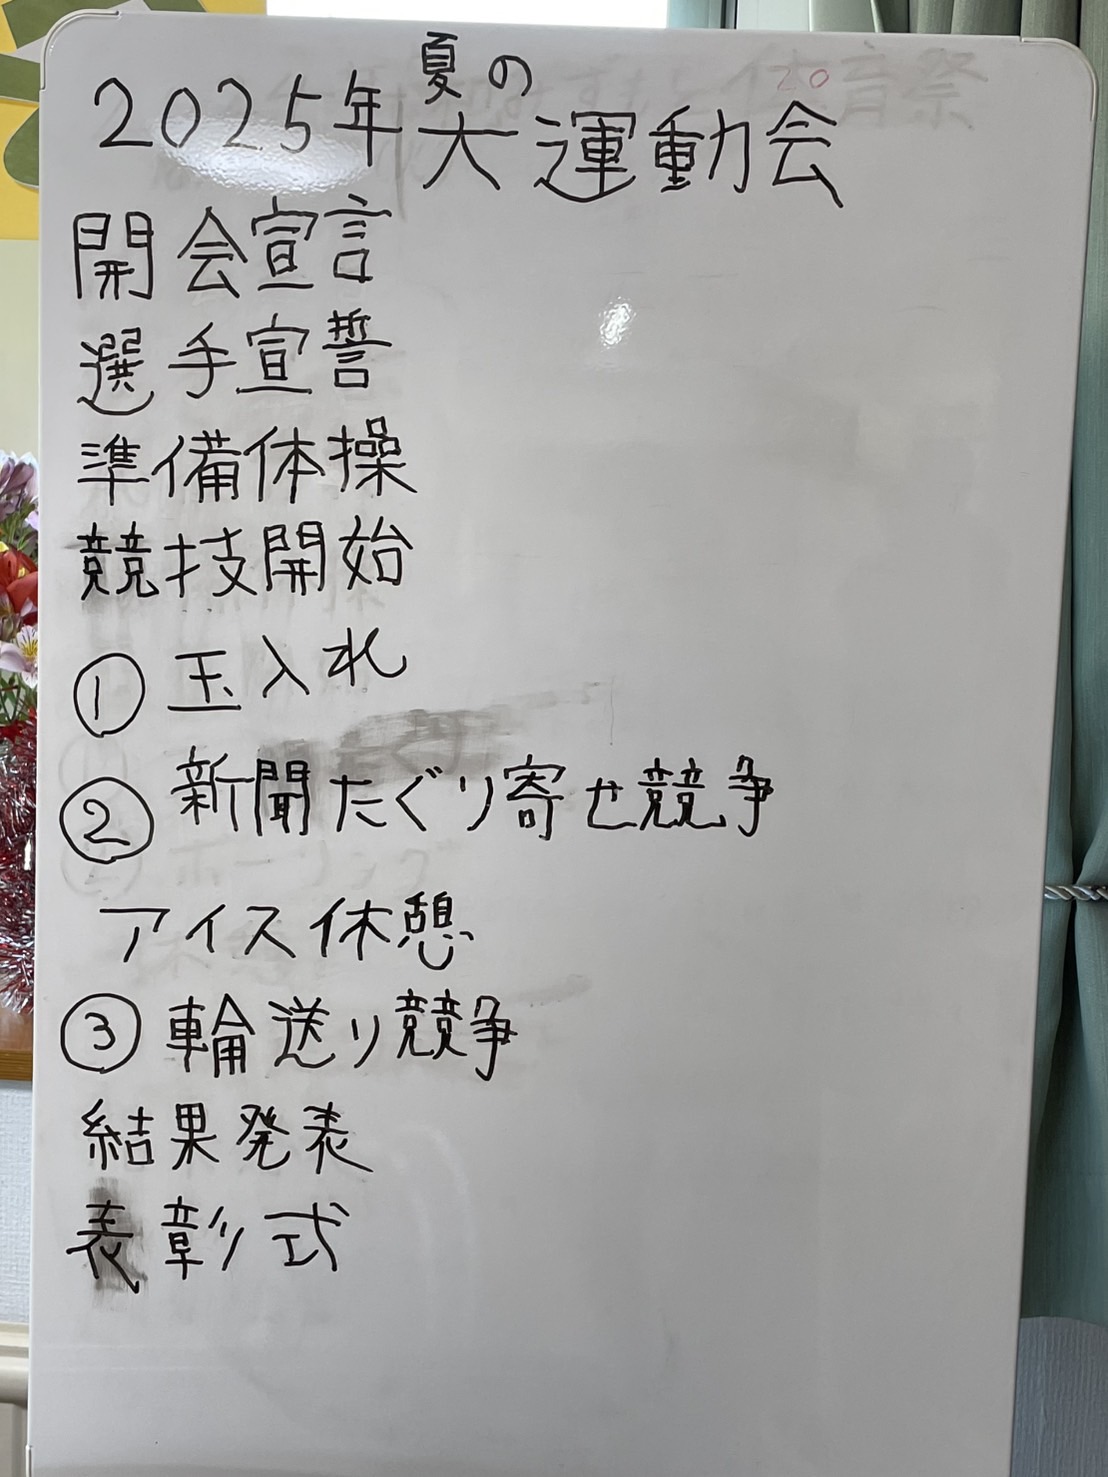 2025年夏の大運動会
開会宣言
選手宣誓
準備体操
競技開始
① 玉入れ
② 新聞たぐり寄せ競争
アイス休憩
③ 輪送り競争
結果発表
表彰式